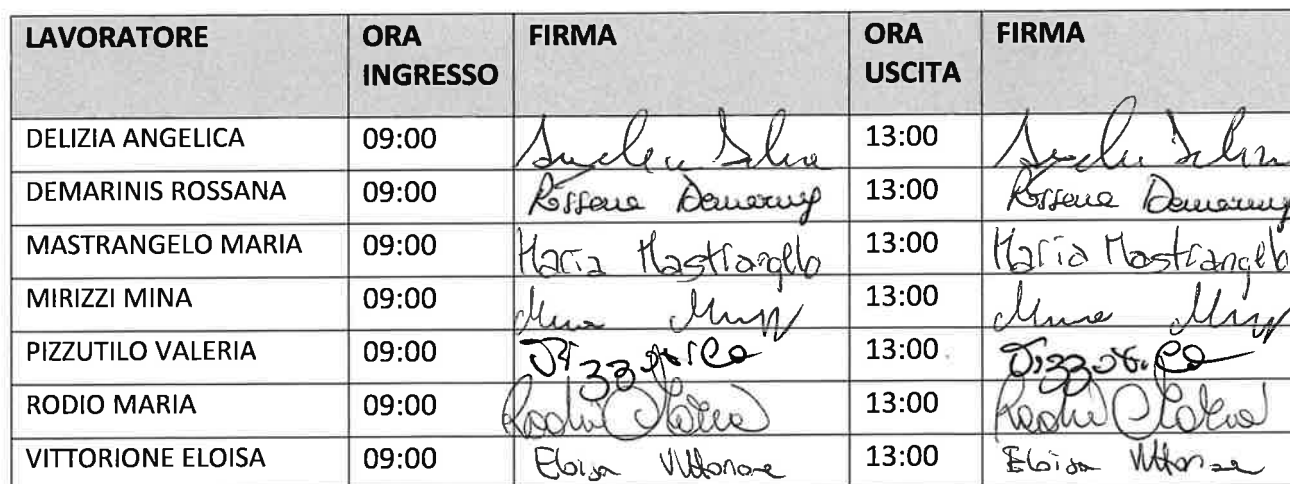 LAVORATORE ORA INGRESSO FIRMA ORA USCITA FIRMA
DELIZIA ANGELICA 09:00 13:00
DEMARINIS ROSSANA 09:00 Rossana Demarinis 13:00 Rossana Demarinis
MASTRANGELO MARIA 09:00 Maria Mastrangelo 13:00 Maria Mastrangelo
MIRIZZI MINA 09:00 13:00
PIZZUTILO VALERIA 09:00 13:00
RODIO MARIA 09:00 Rodio Maria 13:00 Rodio Maria
VITTORIONE ELOISA 09:00 Eloisa Vittorione 13:00 Eloisa Vittorione